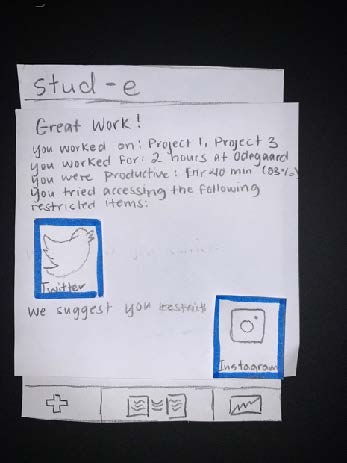 stud-e
Great Work!
You worked on: Project 1, Project 3
You worked for: 2 hours at Odegaard
You were productive: 1hr 40 min (83%)
You tried accessing the following
restricted items:
Twitter
We suggest you restrict
Instagram